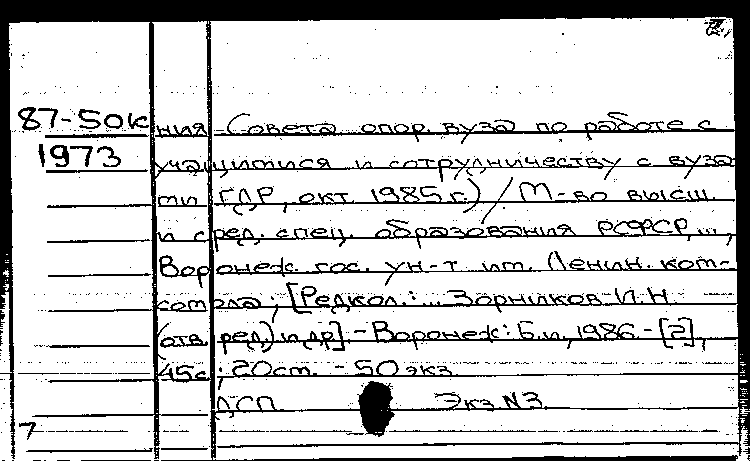 2.
87-50к ния Совета опор. вуза по работе с
1973 учащимися и сотрудничеству с вуза-
ми ГДР, окт. 1985 г.) / М-во высш.
и сред. спец. образования РСФСР, ...,
Воронеж. гос. ун-т им. Ленин. ком-
сомола; [Редкол.: ... Зорников И.Н.
(отв. ред.) и др]. - Воронеж: Б.и., 1986. - [2],
45с.; 20см. - 50 экз.
ДСП. Экз. N3
7